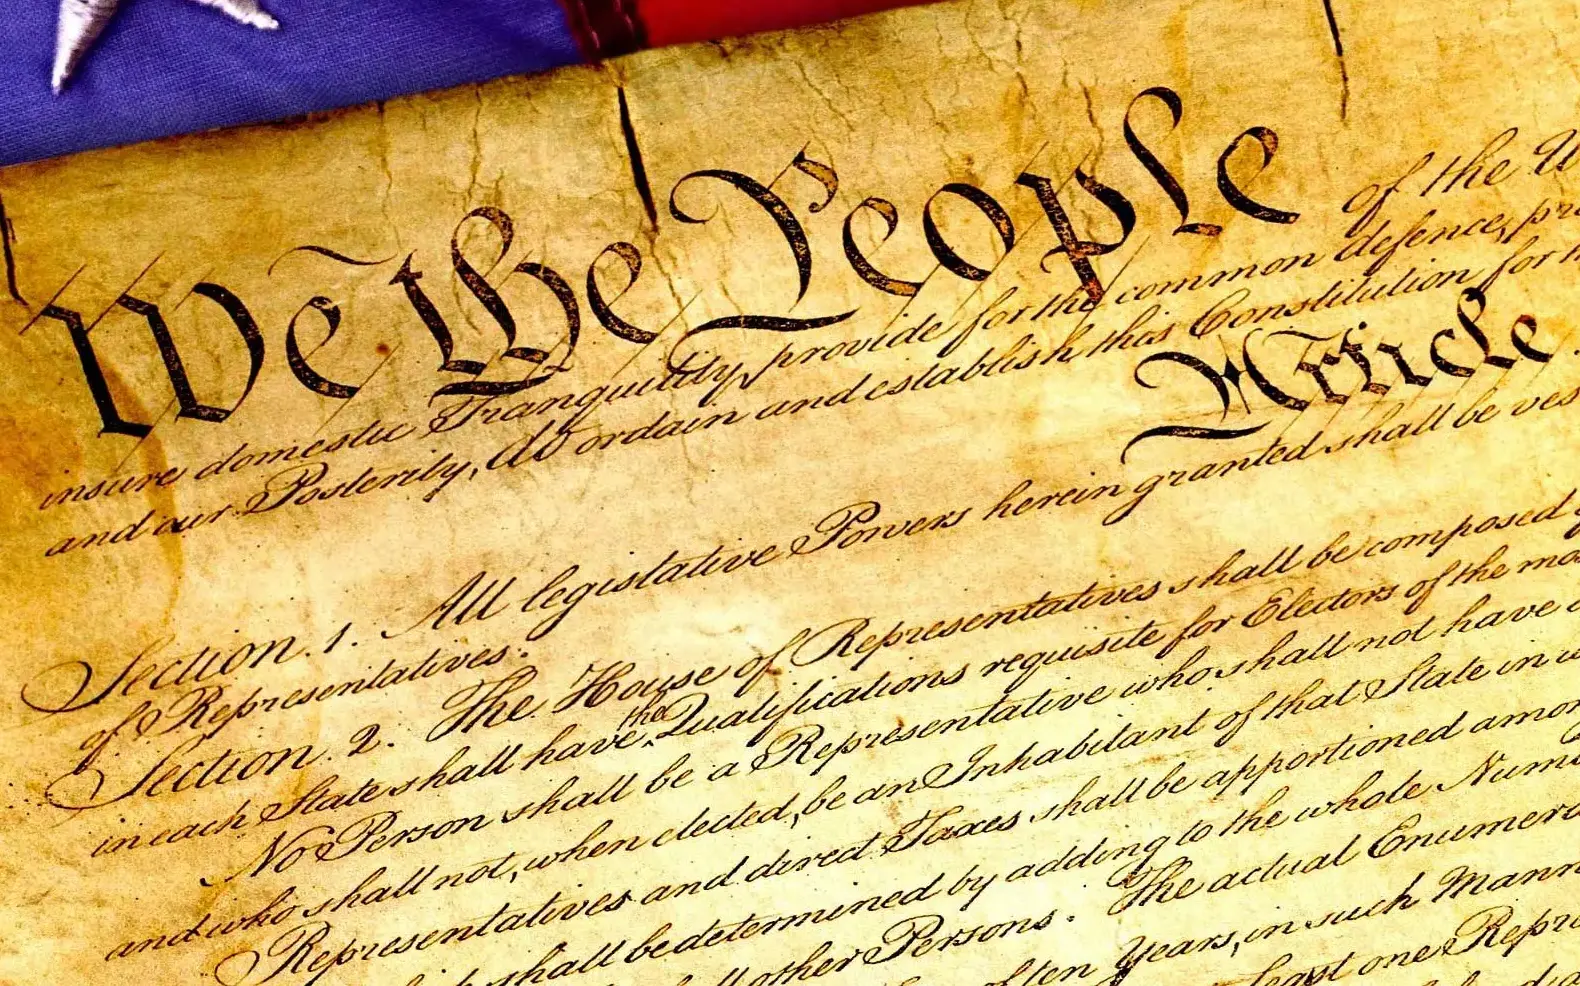 We the People of the U
insure domestic Tranquility, provide for the common defence, pr
and our Posterity, do ordain and establish this Constitution for
Article
Section. 1. All legislative Powers herein granted shall be ves
of Representatives.
Section. 2. The House of Representatives shall be composed
in each State shall have the Qualifications requisite for Electors of the mo
No Person shall be a Representative who shall not have
and who shall not, when elected, be an Inhabitant of that State in w
Representatives and direct Taxes shall be apportioned amon
shall be determined by adding to the whole Num
all other Persons. The actual Enumera
of ten Years, in such Mann
least one Repr